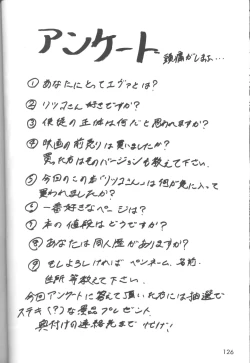 アンケート 頭痛がしまふ…
① あなたにとってエヴァとは?
② リツコさん好きですか?
③ 使徒の正体は何だと思われますか?
④ 映画の前売りは買いましたか?
買った方はそのバージョンも教えて下さい。
⑤ 今回のこの本「リツコさん」は何が気に入って
買われましたか?
⑥ 一番好きなページは?
⑦ 本の値段はどうですか?
⑧ あなたは同人歴がありますか?
⑨ もしよろしければペンネーム、名前、
住所等教えて下さい。
今回アンケートに答えて頂いた方には抽選で
ステキ(?)な景品プレゼント。
奥付けの連絡先まで
126